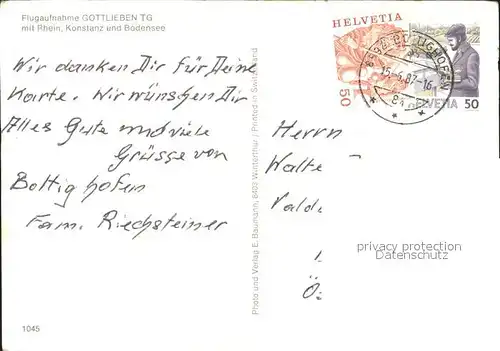 Flugaufnahme GOTTLIEBEN TG
mit Rhein, Konstanz und Bodensee
Wir danken Dir für Deine
Karte. Wir wünschen Dir
Alles Gute und viele
Grüsse von
Bottighofen
Fam. Riechsteiner
1045
Photo und Verlag E. Baumann, 8402 Winterthur / Printed in Switzerland
HELVETIA
50
HELVETIA 50
15.-6.87-16
Herrn
Walte
Valde
Ö
privacy protection
Datenschutz